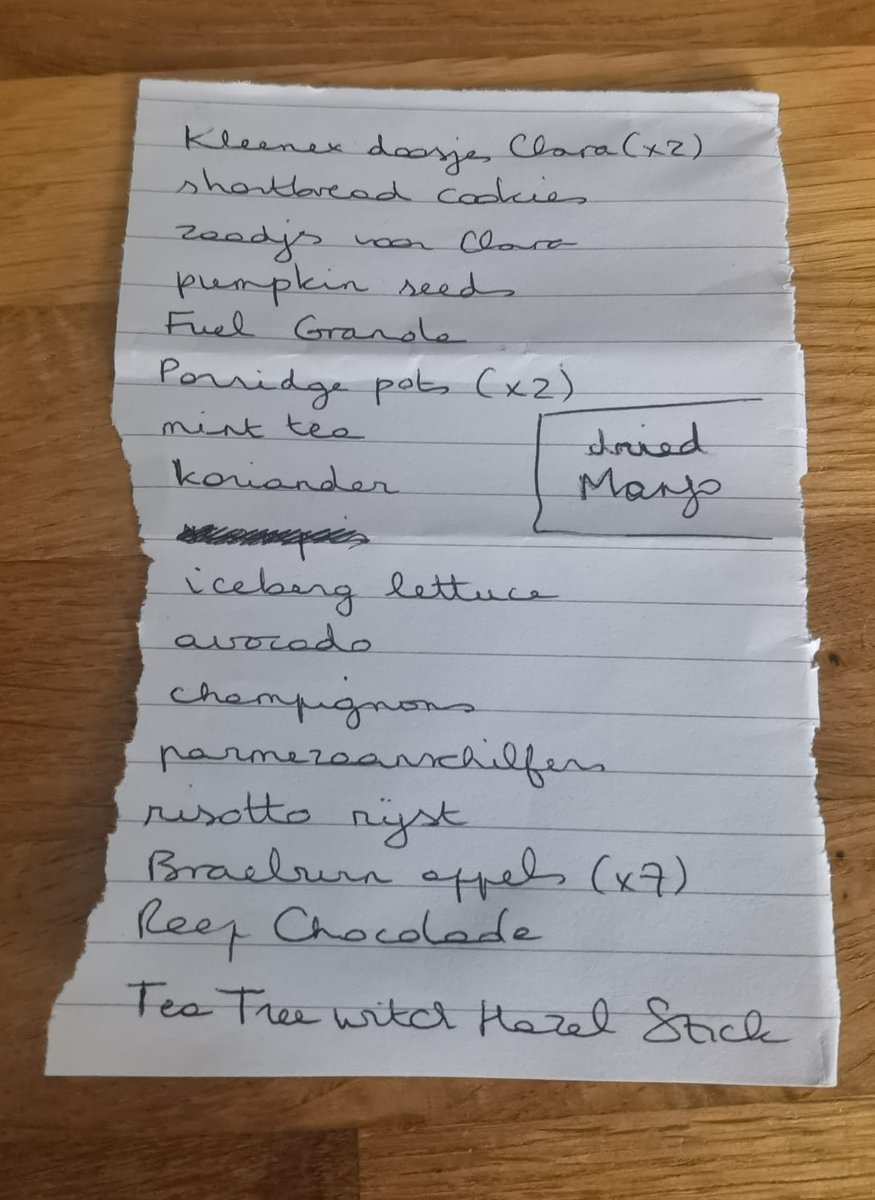 Kleenex doosjes Clara (x2)
shortbread cookies
zaadjs voor Clara
pumpkin seeds
Fuel Granola
Porridge pots (x2)
mint tea
koriander
dried
Mango
iceberg lettuce
avocado
champignons
parmezaanschilfers
risotto rijst
Braeburn appels (x7)
Reep Chocolade
Tea Tree witch Hazel Stick